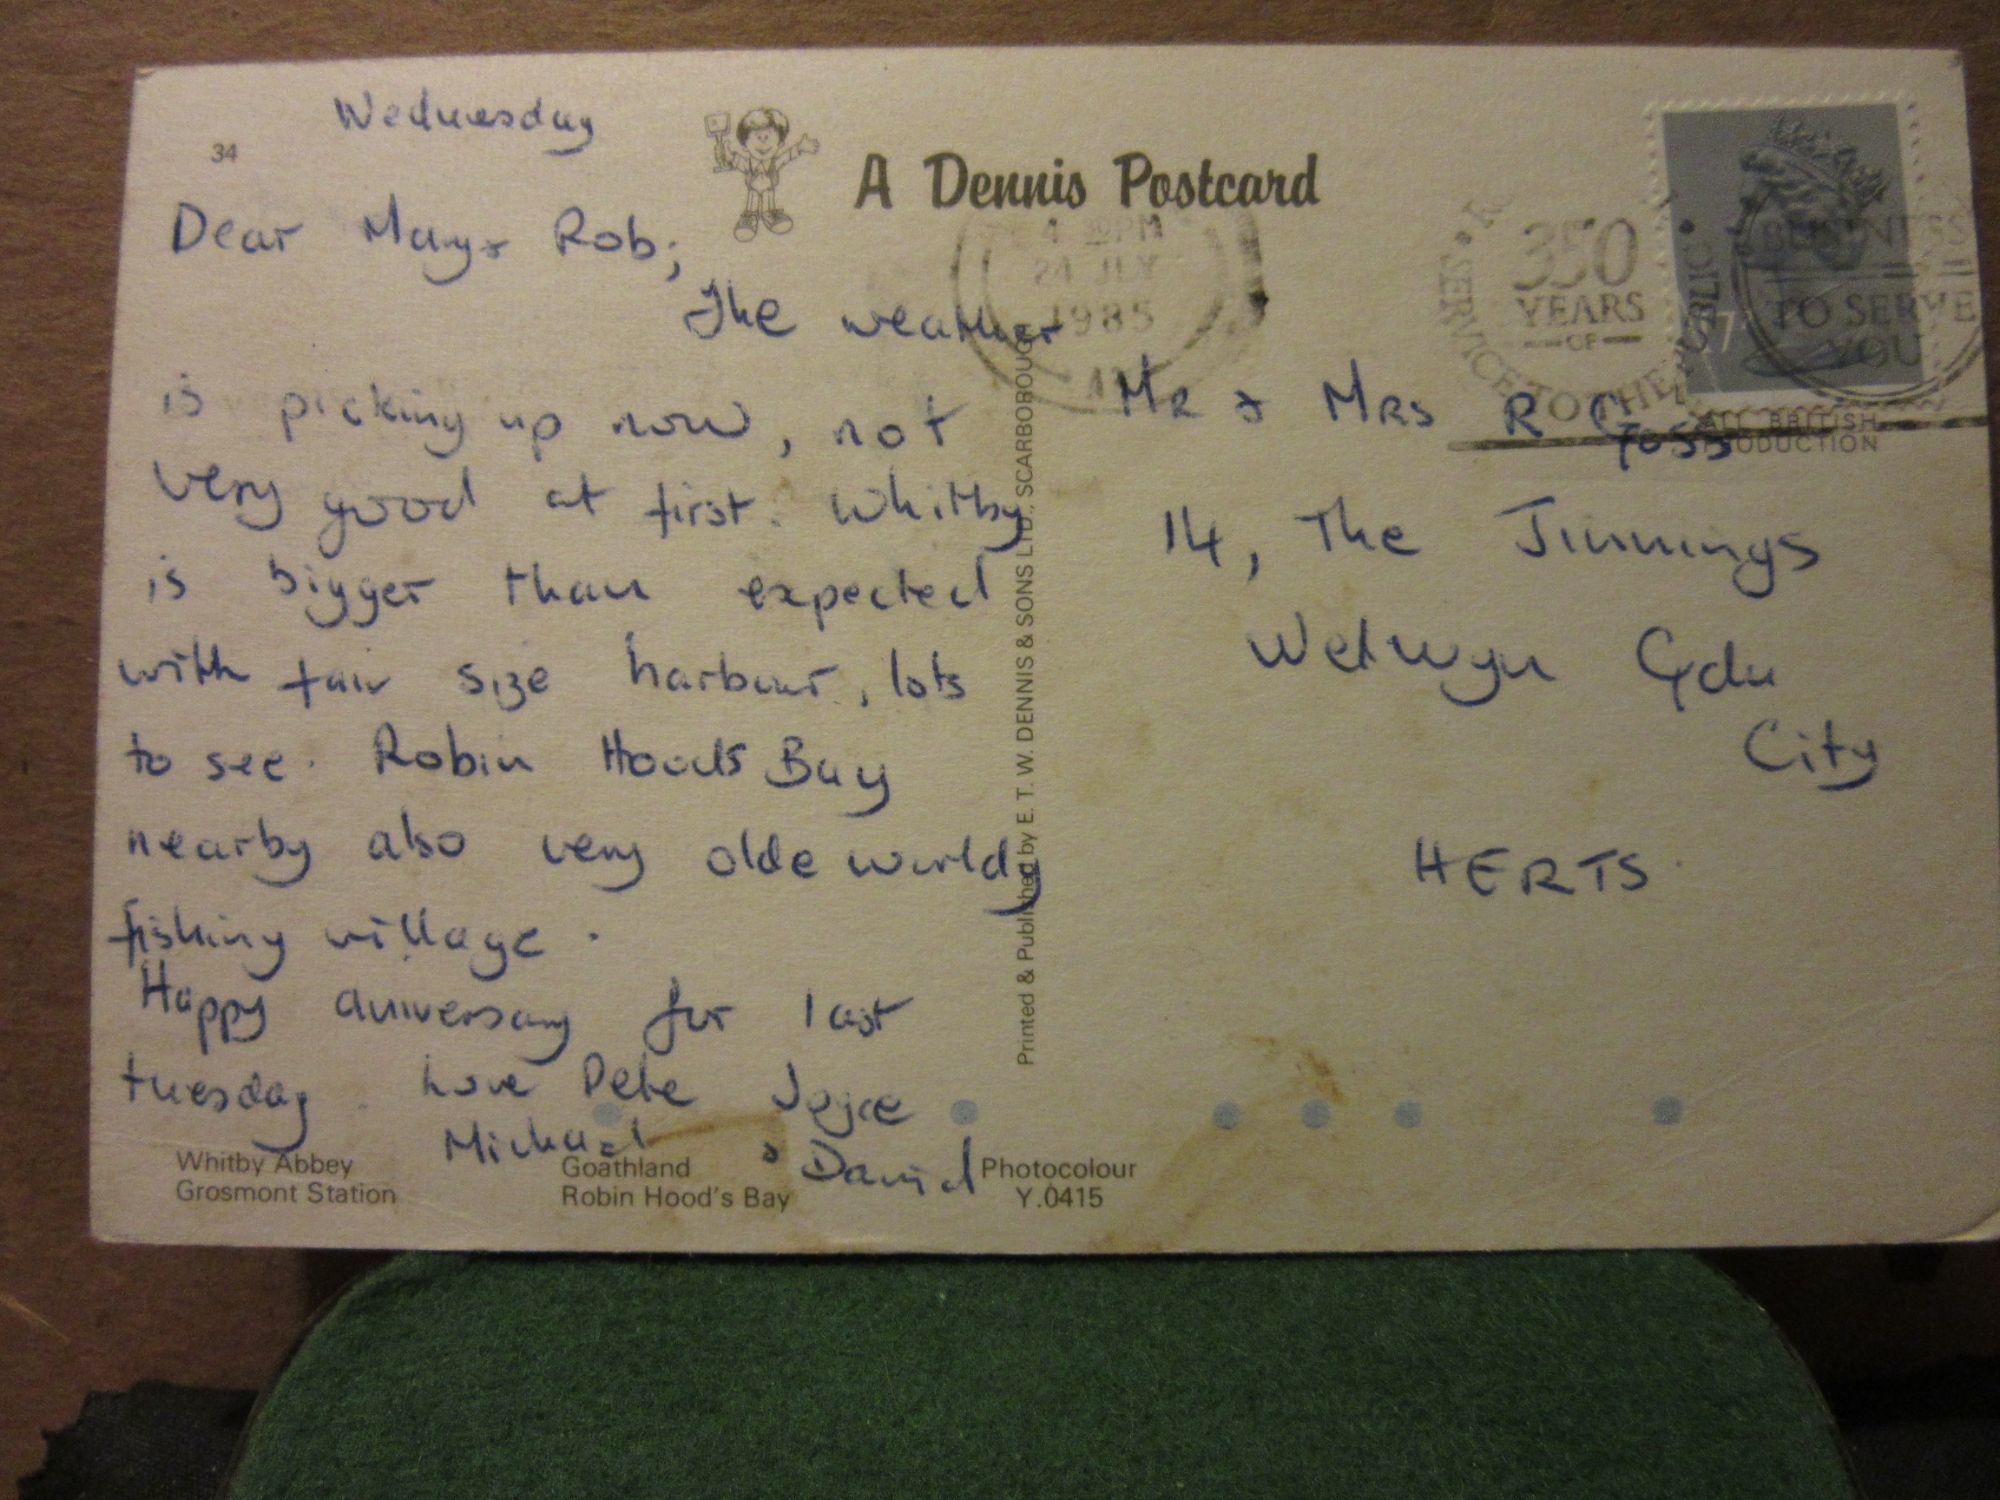 34
Wednesday
A Dennis Postcard
Dear Mary & Rob;
The weather
is picking up now, not
very good at first. Whitby
is bigger than expected
with fair size harbour, lots
to see. Robin Hoods Bay
nearby also very olde worldy
fishing village.
Happy aniversary for last
tuesday. Love Pete Joyce
Michael & David
Whitby Abbey
Grosmont Station
Goathland
Robin Hood's Bay
Photocolour
Y.0415
Printed & Published by E. T. W. DENNIS & SONS LTD., SCARBOROUGH
4 PM
24 JLY
1985
350
YEARS
OF
SERVICE TO THE PUBLIC
BUSINESS
TO SERVE
YOU
17
ALL BRITISH
PRODUCTION
Mr & Mrs R C
Foss
14, The Jinnings
Welwyn Gdn
City
HERTS.